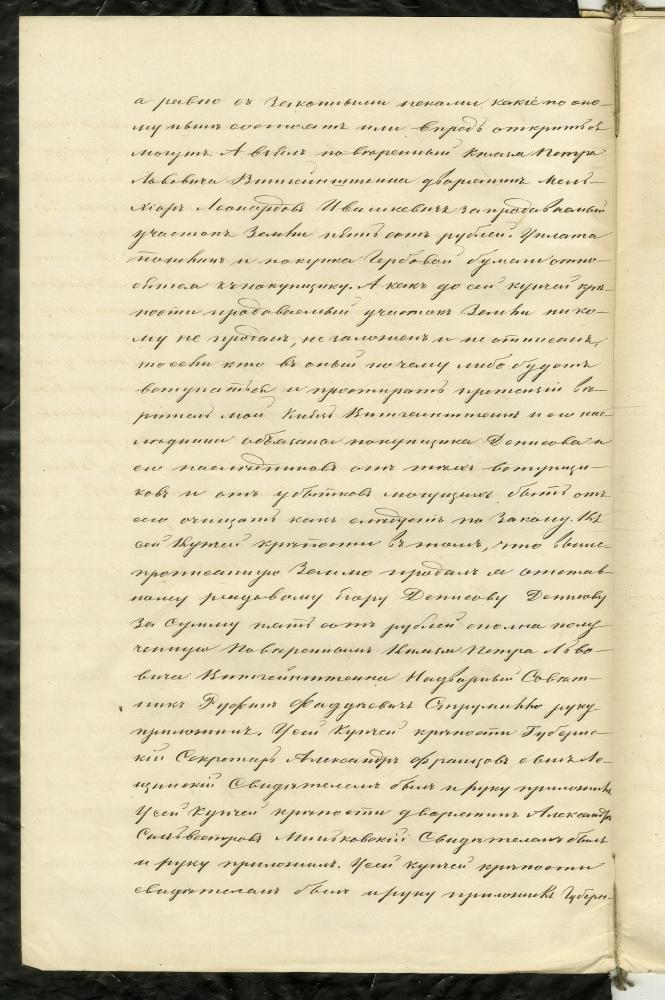 а равно съ Законными исками, какіе по оно-
му нынѣ состоятъ или впредь открыться
могутъ. А взялъ повѣренный Князя Петра
Львовича Витгенштейна дворянинъ Мель-
хіоръ Леонардовъ Ивашкевичъ за продаваемый
участокъ Земли пять сотъ рублей. Уплата
пошлинъ и покупка Гербовой бумаги отно-
сится къ покупщику. А какъ до сей купчей крѣ-
пости продаваемый участокъ Земли нико-
му не проданъ, не заложенъ и не отписанъ,
то если кто въ оный почему либо будетъ
вступаться и простирать претензіи вѣ-
ритель мой Князь Витгенштейнъ и его нас-
лѣдники обязаны покупщика Денисова и
его наслѣдниковъ отъ тѣхъ вступщи-
ковъ и отъ убытковъ могущихъ быть отъ
сего очищать какъ слѣдуетъ по Закону. Къ
сей Купчей крѣпости въ томъ, что выше-
прописанную Землю продалъ я отстав-
ному рядовому Егору Денисову Денисову
За Сумму пять сотъ рублей сполна полу
ченную Повѣренный Князя Петра Льво-
вича Витгенштейна Надворный Совѣт-
никъ Руфинъ Фаддѣевичъ руку
приложилъ. У сей Купчей крѣпости Губернс-
кій Секретарь Александръ Францовъ сынъ Ло-
щинскій Свидѣтелемъ былъ и руку приложилъ
У сей Купчей крѣпости дворянинъ Александръ
Сильвестровъ Свидѣтелемъ былъ
и руку приложилъ. У сей купчей крѣпости
свидѣтелемъ былъ и руку приложилъ Губерн-